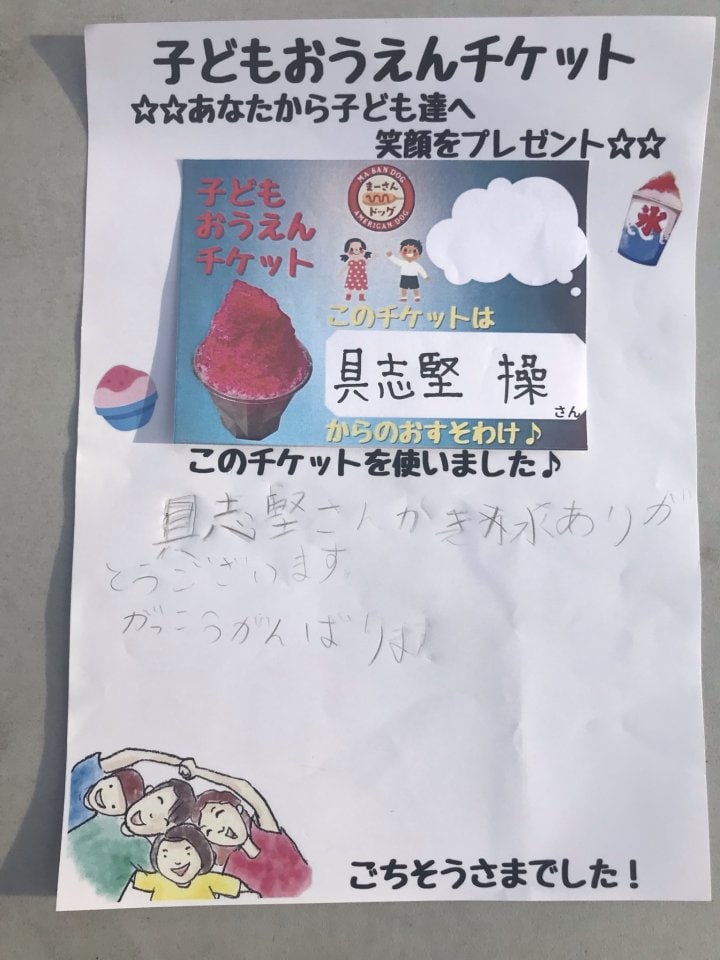 子どもおうえんチケット
☆☆あなたから子ども達へ
笑顔をプレゼント☆☆
子ども
おうえん
チケット
MA-SAN DOG
まーさん
ドッグ
AMERICAN DOG
氷
このチケットは
具志堅 操
さん
からのおすそわけ♪
このチケットを使いました♪
具志堅さんかき氷ありが
とうございます。
がっこうがんばりま
ごちそうさまでした！